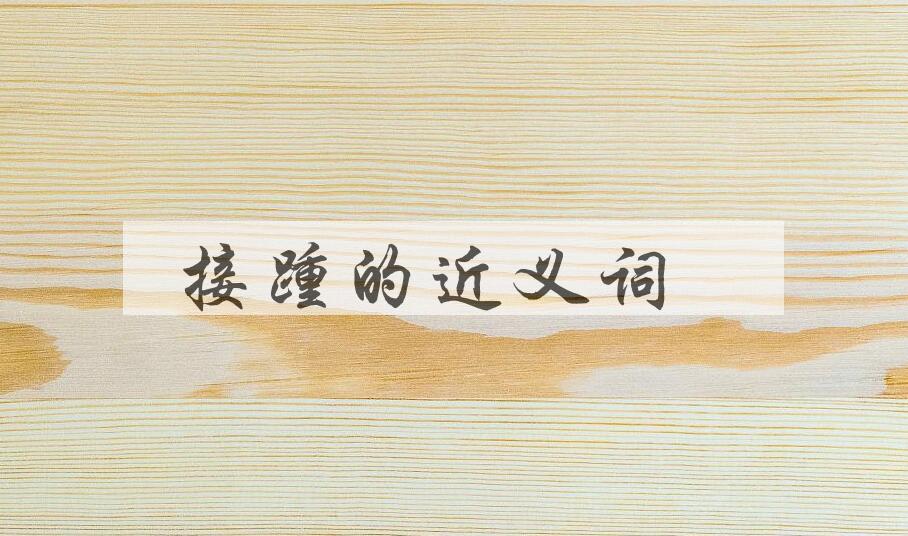 接踵的近义词